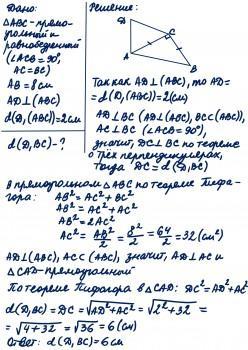 Дано:
ΔABC - прямо-
угольный и
равнобедренный
(∠ACB = 90°,
AC = BC)
AB = 8 см
AD⊥(ABC)
d(D,(ABC)) = 2 см
d(D,BC) - ?
Решение:
D
C
A
B
Так как AD⊥(ABC), то AD =
= d(D,(ABC)) = 2 (см)
AD⊥BC (AD⊥(ABC), BC⊂(ABC)),
AC⊥BC (∠ACB = 90°),
значит, DC⊥BC по теореме
о трёх перпендикулярах,
тогда DC = d(D,BC)
В прямоугольном ΔABC по теореме Пифа-
гора: AB² = AC² + BC²
AB² = AC² + AC²
AB² = 2AC²
AC² = AB²/2 = 8²/2 = 64/2 = 32 (см²)
AD⊥(ABC), AC⊂(ABC), значит, AD⊥AC и
ΔCAD - прямоугольный
По теореме Пифагора в ΔCAD: DC² = AD² + AC²
d(D,BC) = DC = √AD² + AC² = √2² + 32 =
= √4 + 32 = √36 = 6 (см)
Ответ: d(D,BC) = 6 см